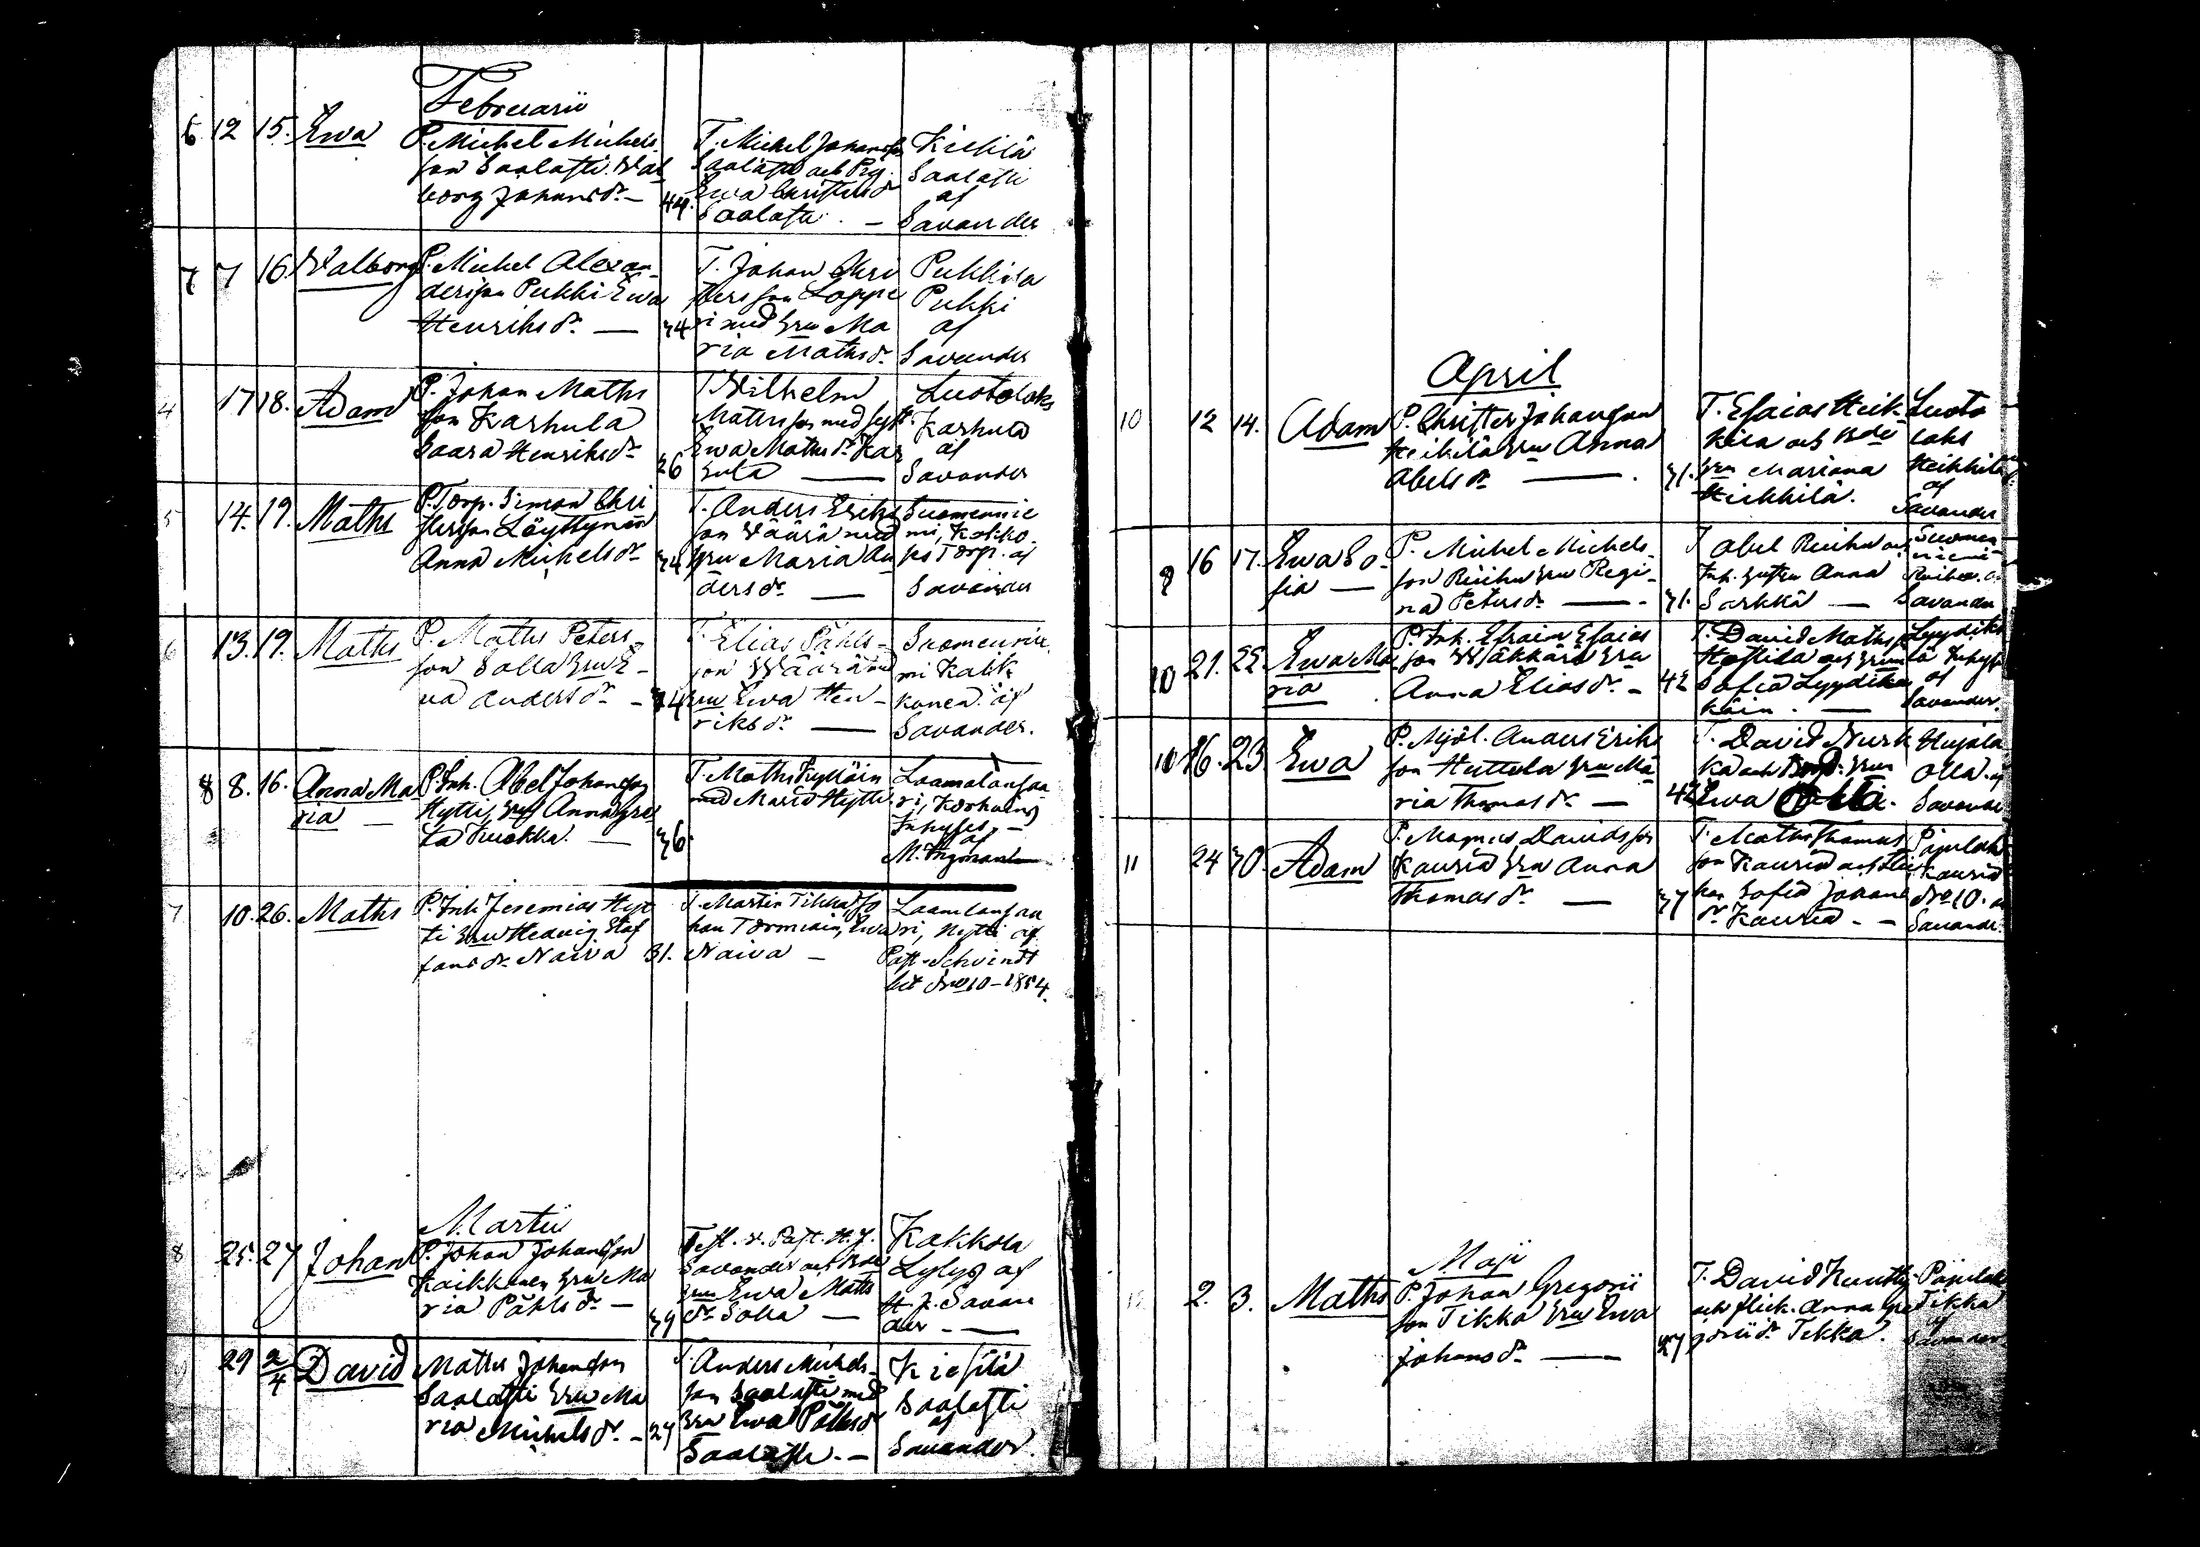 Februarii
6 12 15. Ewa
P. Michel Michels
son Saalasti. Wal
borg Johansdr. — 44.
T. Michel Johansson
Saalasti och Pig.
Ewa Christersdr
Saalasti. —
Kiesilä
Saalasti
af
Savander
7 7 16. Walborg
P. Michel Alexan-
dersson Pukki Ewa
Henriksdr. — 34
T. Johan Chri
stersson Loppe
ri med hru Ma
ria Mathsdr.
Pukkila
Pukki
af
Savander
4 17 18. Adam
P. Johan Maths
son Karhula
Saara Henriksdr 26
T. Wilhelm
Mathsson med
Ewa Mathsdr. Kar
hula —
Luotolaks
Karhula
af
Savander
5 14. 19. Maths
P. Torp. Simon Chri
stersson Löyttynen
Anna Michelsdr 34
T. Anders Eriks
son Wäärä med
hru Maria An
dersdr. —
Suomennie
mi, Kokko.
Torp. af
Savander
6 13. 19. Maths
P. Maths Peters-
son Solla hru E-
va Andersdr — 34
T. Elias Påhls-
son Wäärä med
hru Ewa Hen-
riksdr —
Suomennie
mi Kakk
konen. af
Savander.
8 8. 16. Anna Ma
ria —
P. Inh. Abel Johansson
Hytti, hru Anna Gre
ta Kuokka. — 36
T. Maths Kylliäin
med Maria Hytti.
Laamalansaa
ri, Korhola
Inhyses —
af
M. Ingman
7 10. 26. Maths
P. Inh. Jeremias Hyt
ti hru Hedvig Staf
fansdr. Naiva 31.
T. Martin Tikka Jo
han Törmiäin, Ewa
Naiva —
Laamlansaa
ri, Hytti af
Past. Schvindt
bet. No 10 - 1854.
Martii
8 25. 27 Johan
P. Johan Johansson
Kaikkonen hru Ma
ria Påhlsdr — 39
Test. v. Past. H. J.
Savander och
hru Ewa Maths
dr. Solla —
Kakkola
Lylys af
H. J. Savan
der —
29 2/4 David
Maths Johansson
Saalasti hru Ma
ria Michelsdr. — 27
T. Anders Michels-
son Saalasti med
hru Ewa Påhlsdr
Saalasti. —
Kiesilä
Saalasti
af
Savander.
April
10 12 14. Adam
P. Christer Johansson
Heikkilä hru Anna
Abelsdr — 31.
T. Esaias Heik-
kilä och
hru Mariana
Heikkilä.
Luoto
laks
Heikkilä
af
Savander
9 16 17. Ewa So-
fia —
P. Michel Michels-
son Riiihu hru Regi-
na Petersdr — 31.
T. Abel Riiihu och
Inh. hustru Anna
Sarkkä —
Suomen
niemi
Savander
10 21. 22. Ewa Ma
ria
P. Inh. Efraim Esaias
son Wäkkärä hru
Anna Eliasdr. — 42
T. David Mathss.
och hru
Sofia Lyydikä
käin. —
Lyydikä
lä Inhys
af
Savander
10 16. 23 Ewa
P. Mjöl. Anders Eriks
son Huttula hru Ma
ria Thomasdr. — 42
T. David Nurk
ka och hru
Ewa Olla.
Hujala
Olla. af
Savander
11 24 30. Adam
P. Magnus Davidsson
Kauria hru Anna
Thomasdr — 37
T. Maths Thomas
son Kauria och flic
kan Sofia Johans
dr. Kauria. —
Pajulah
Kauria
No 10. af
Savander.
Maji
12 2. 3. Maths
P. Johan Gregorii
son Tikka hru Ewa
Johansdr. — 27
T. David Kuutti
och flick. Anna Gre
goriidr Tikka.
Pajulah
Tikka
af
Savander